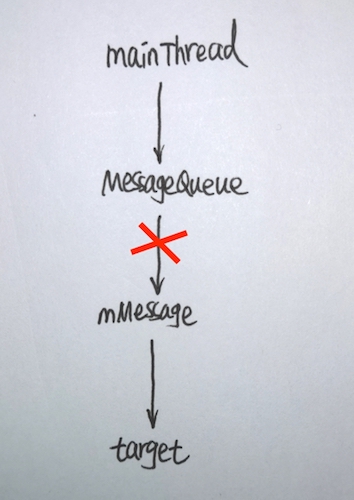 mainThread
MessageQueue
mMessage
target